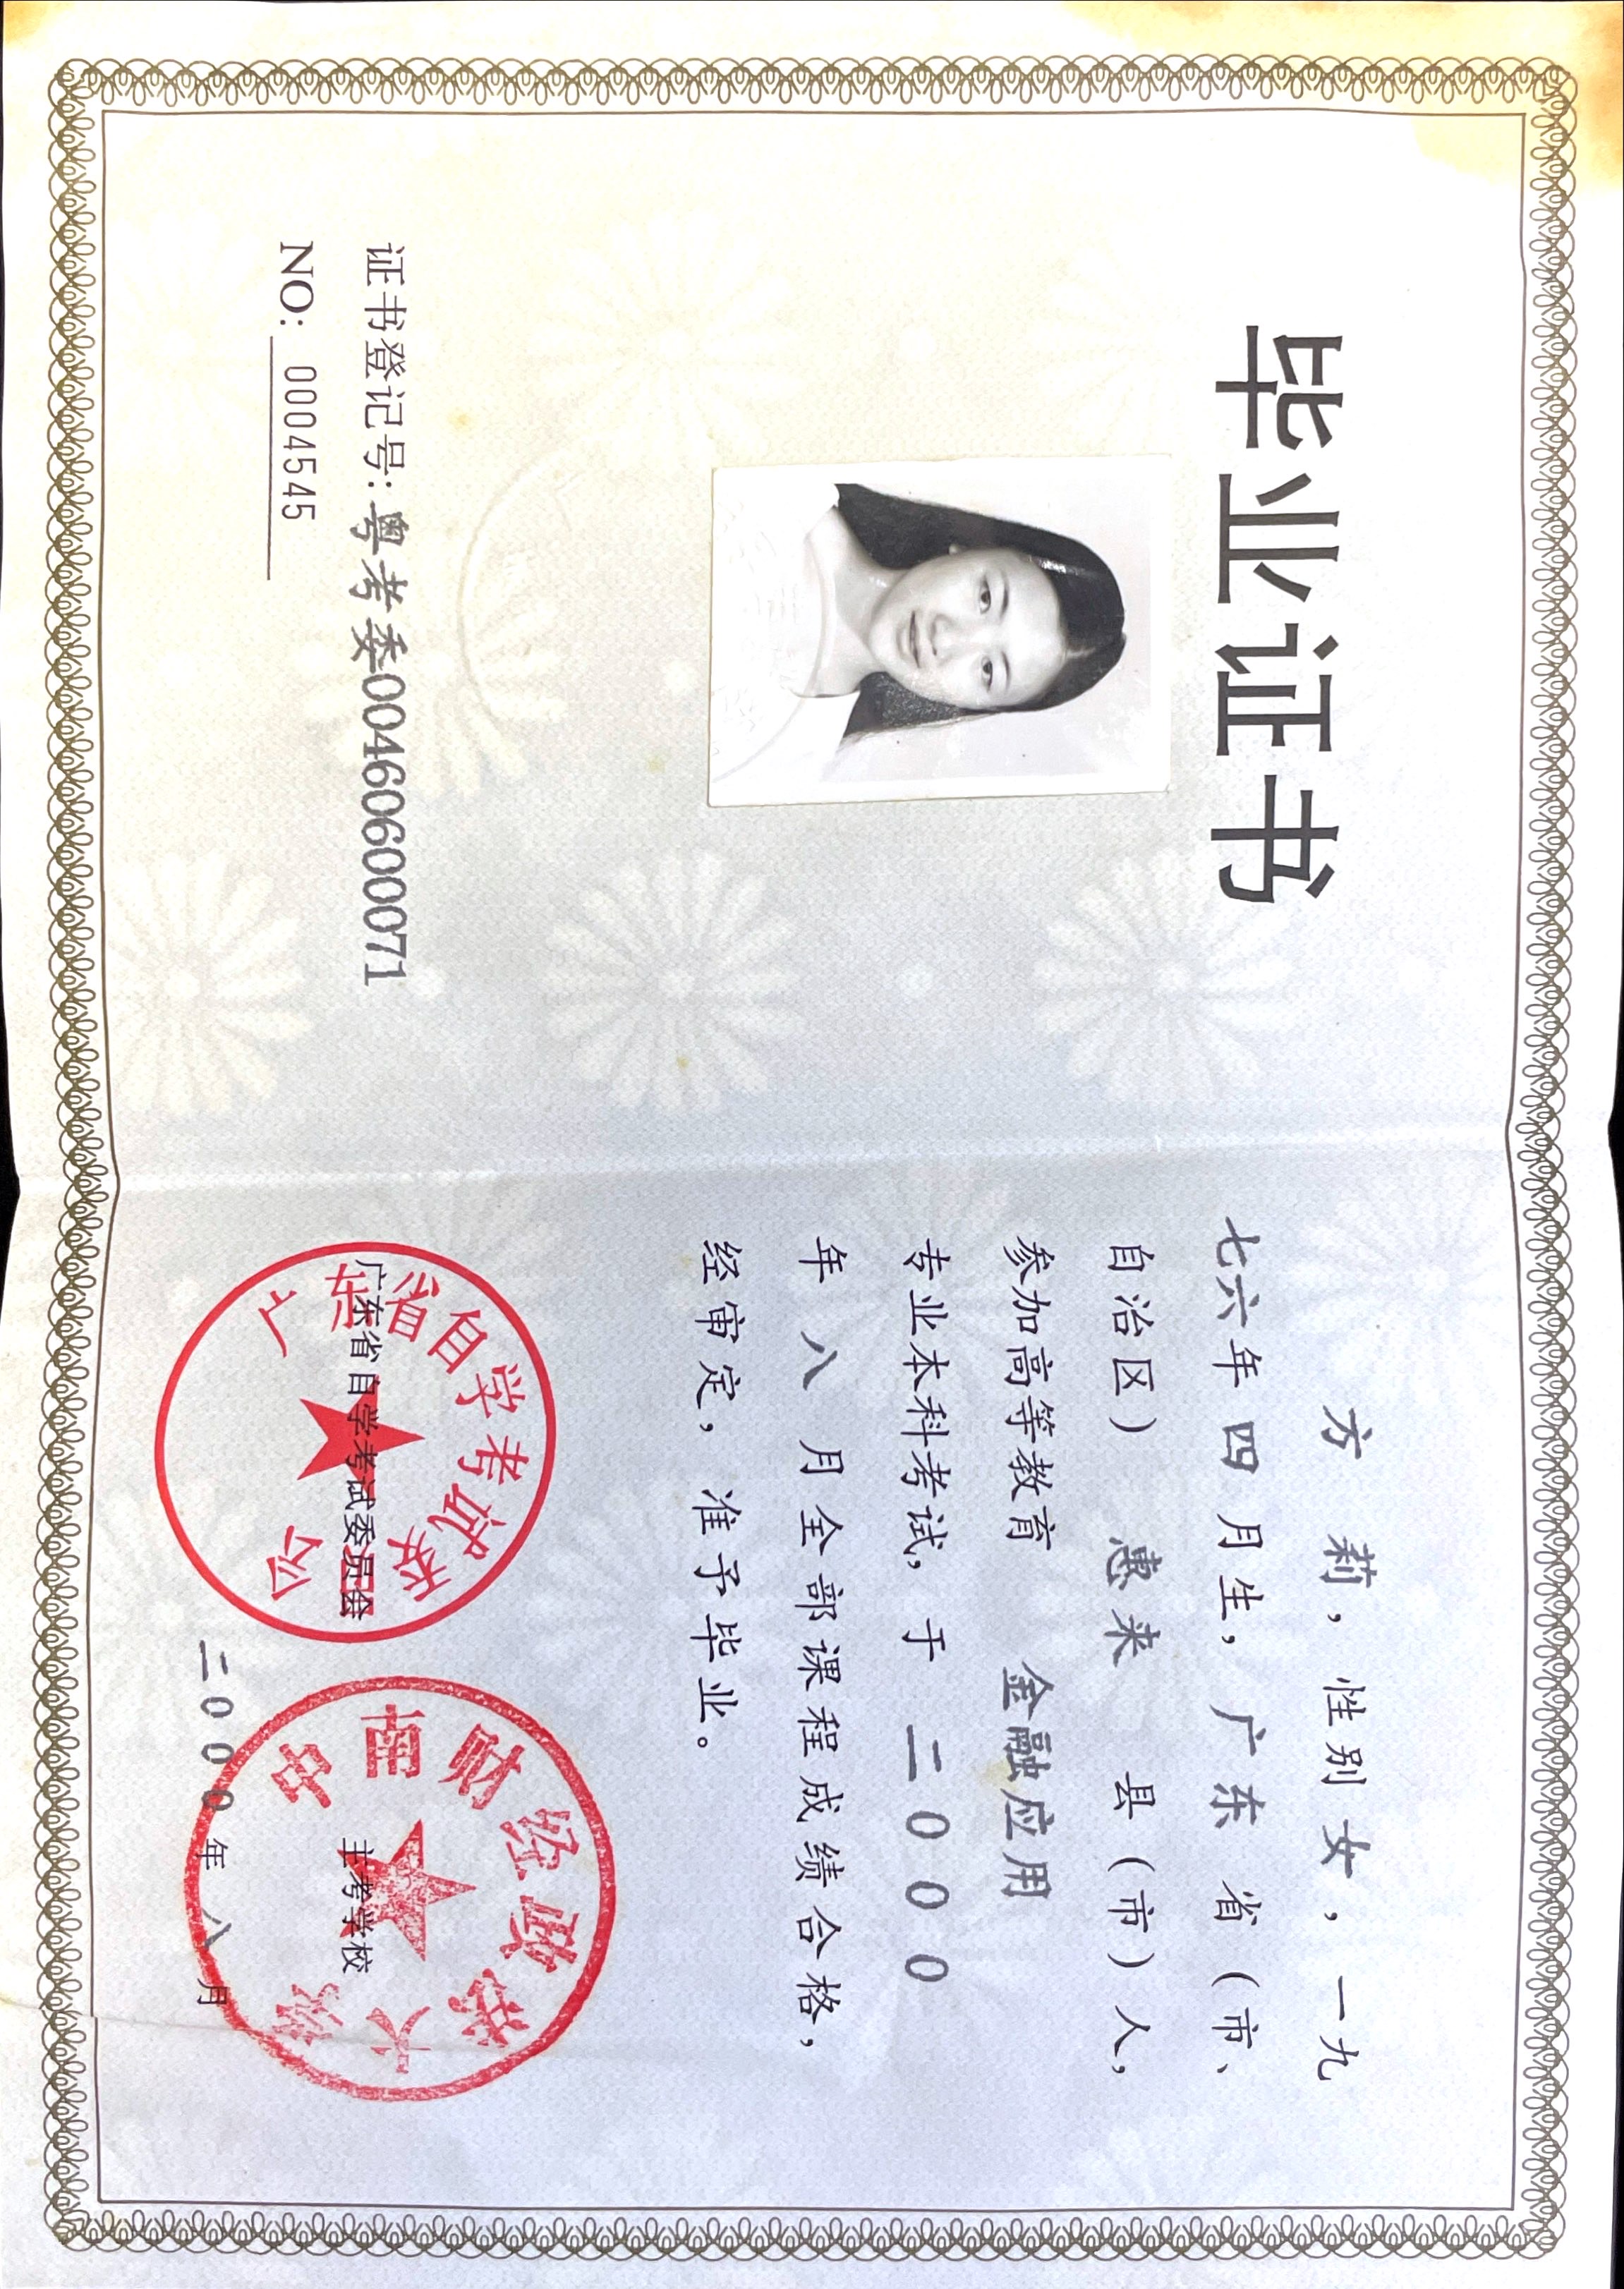 毕业证书
证书登记号:粤考委004606600071
NO: 0004545
方 莉, 性别 女, 一九
七六年 四 月生, 广东 省(市、
自治区) 惠来 县(市)人,
参加高等教育 金融应用
专业本科考试, 于 二000
年 八 月全部课程成绩合格,
经审定, 准予毕业。
广东省自学考试委员会
广东省自学考试委员会
中南财经政法大学
主考学校
二000年 八 月